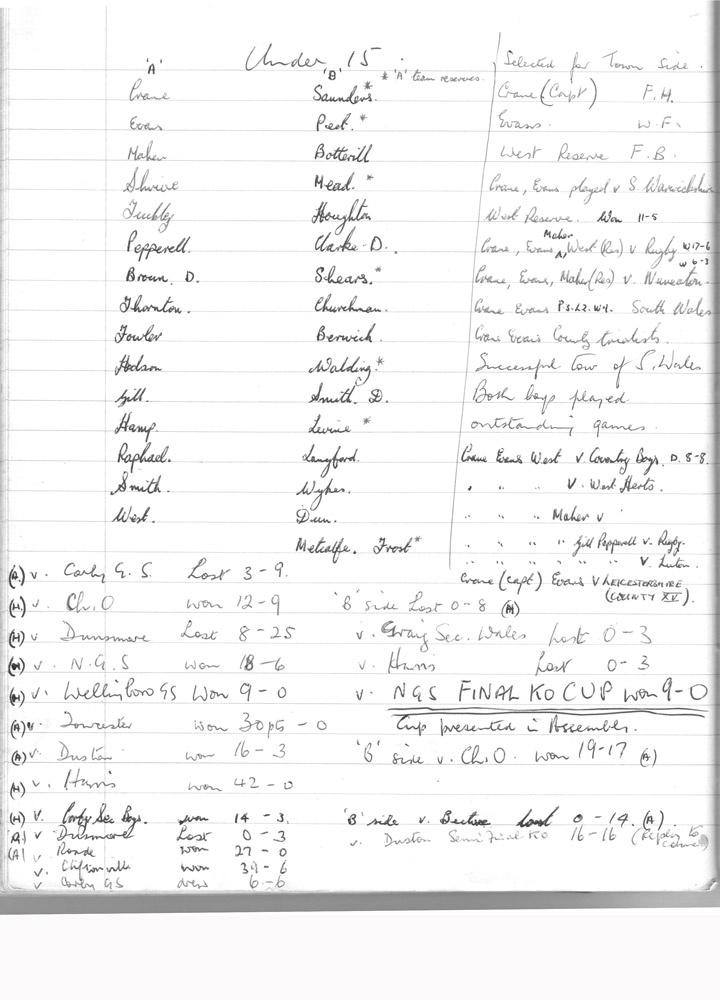 Under 15.
'A'
Crane
Evans
Maher
Shrive
Tuckley
Pepperell.
Brown. D.
Thornton.
Fowler
Hodson
Gill.
Hamp.
Raphael.
Smith.
West.
'B' * 'A' team reserves.
Saunders.*
Peet.*
Botterill
Mead.*
Houghton
Clarke D.
Shears.*
Churchman.
Berwick.
Walding.*
Smith. D.
Levine *
Langford.
Wykes.
Dun.
Metcalfe. Frost*
Selected for Town side.
Crane (Capt) F.H.
Evans. W.F.
West Reserve F.B.
Crane, Evans played v S. Warwickshire
West Reserve. Won 11-5
Crane, Evans, Maher, West (Res) v Rugby W 17-6
W 6-3
Crane, Evans, Maher (Res) v. Nuneaton.
Crane Evans South Wales
Crane Evans County trialists.
Successful tour of S. Wales
Both boys played
outstanding games.
Crane Evans West v. Coventry Boys. D. 8-8.
" " " v. West Herts.
" " " Maher v
" " " " Gill Pepperell v. Rugby.
" " " " " " v. Luton.
Crane (Capt) Evans v LEICESTERSHIRE
(COUNTY XV).
(A) v. Corby G.S. Lost 3-9.
(H) v. Ch.O won 12-9
(H) v Dunsmore Lost 8-25
(H) v. N.G.S won 18-6
(H) v. Wellingboro GS Won 9-0
(A) v. Towcester won 30pts - 0
(A) v. Duston won 16-3
(H) v. Harris won 42-0
(H) v. Corby Sec Boys. won 14-3.
(A) v Dunsmore Lost 0-3
(A) v Roade won 27-0
v. Cliftonville won 39-6
v Corby GS drew 6-6
'B' side Lost 0-8 (A)
v. Graig Sec. Wales Lost 0-3
v. Harris Lost 0-3
v. NGS FINAL KO CUP won 9-0
Cup presented in Assembly.
'B' side v. Ch.O. won 19-17 (A)
'B' side v. Bective Lost 0-14. (A).
v. Duston Semi Final KO 16-16 (Replay to